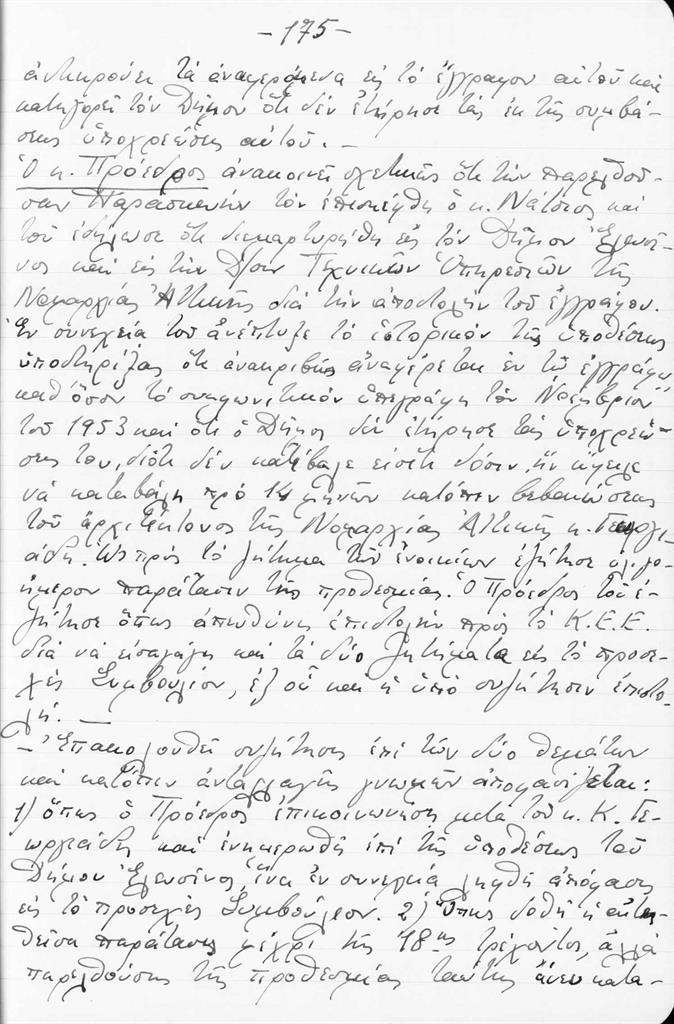 -175-
ἀντικρούει τὰ ἀναφερόμενα εἰς τὸ ἔγγραφον αὐτοῦ καὶ
κατηγορεῖ τὸν Δῆμον ὅτι δὲν ἐτήρησε τὰς ἐκ τῆς συμβά-
σεως ὑποχρεώσεις αὐτοῦ. -
Ὁ κ. Πρόεδρος ἀνακοινοῖ σχετικῶς ὅτι τὴν παρελθοῦ-
σαν Παρασκευὴν τὸν ἐπεσκέφθη ὁ κ. Νάτσιος καὶ
τοῦ ἐδήλωσε ὅτι διεμαρτυρήθη εἰς τὸν Δῆμον Ἐλευσῖ-
νος καὶ εἰς τὴν Δ/σιν Τεχνικῶν Ὑπηρεσιῶν τῆς
Νομαρχίας Ἀττικῆς διὰ τὴν ἀποστολὴν τοῦ ἐγγράφου.
Ἐν συνεχείᾳ τοῦ ἀνέπτυξε τὸ ἱστορικὸν τῆς ὑποθέσεως
ὑποστηρίξας ὅτι ἀνακριβῶς ἀναφέρεται ἐν τῷ ἐγγράφῳ
καθ' ὅσον τὸ συμφωνητικὸν ὑπεγράφη τὸν Νοέμβριον
τοῦ 1953 καὶ ὅτι ὁ Δῆμος δὲν ἐτήρησε τὰς ὑποχρεώ-
σεις του, διότι δὲν κατέβαλε εἰσέτι δόσιν, ἣν ὤφειλε
νὰ καταβάλῃ πρὸ 14 μηνῶν κατόπιν βεβαιώσεως
τοῦ ἀρχιτέκτονος τῆς Νομαρχίας Ἀττικῆς κ. Γεωργι-
άδη. Ὡς πρὸς τὸ ζήτημα τῶν ἐνοικίων ἐζήτησε ὀλιγο-
ήμερον παράτασιν τῆς προθεσμίας. Ὁ Πρόεδρος τοῦ ἐ-
ζήτησε ὅπως ἀπευθύνῃ ἐπιστολὴν πρὸς τὸ Κ.Ε.Ε.
διὰ νὰ εἰσαγάγῃ καὶ τὰ δύο ζητήματα εἰς τὸ προσε-
χὲς Συμβούλιον, ἐξ οὗ καὶ ἡ ὑπὸ συζήτησιν ἐπιστο-
λή. -
- Ἐπακολουθεῖ συζήτησις ἐπὶ τῶν δύο θεμάτων
καὶ κατόπιν ἀνταλλαγῆς γνωμῶν ἀποφασίζεται:
1) ὅπως ὁ Πρόεδρος ἐπικοινωνήσῃ μετὰ τοῦ κ. Κ. Γε-
ωργιάδη καὶ ἐνημερωθῇ ἐπὶ τῆς ὑποθέσεως τοῦ
Δήμου Ἐλευσῖνος, ἵνα ἐν συνεχείᾳ ληφθῇ ἀπόφασις
εἰς τὸ προσεχὲς Συμβούλιον. 2) Ὅπως δοθῇ ἡ αἰτη-
θεῖσα παράτασις μέχρι τῆς 18ης τρέχοντος, ἀλλὰ
παρελθούσης τῆς προθεσμίας ταύτης ἄνευ κατα-